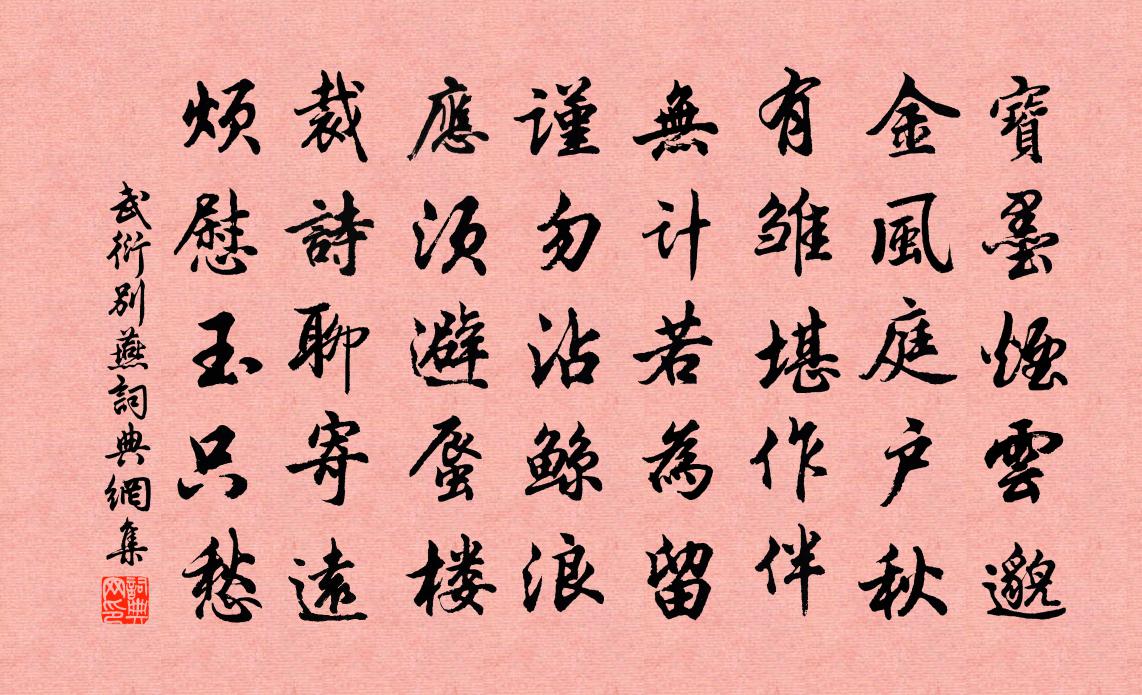 寶墨煙雲邈
金風庭户秋
有雏堪作伴
無计若為留
謹勿沾鲸浪
應須避蜃楼
裁詩聊寄遠
煩慰玉只愁
武衍别燕詞典網集
詞典网印